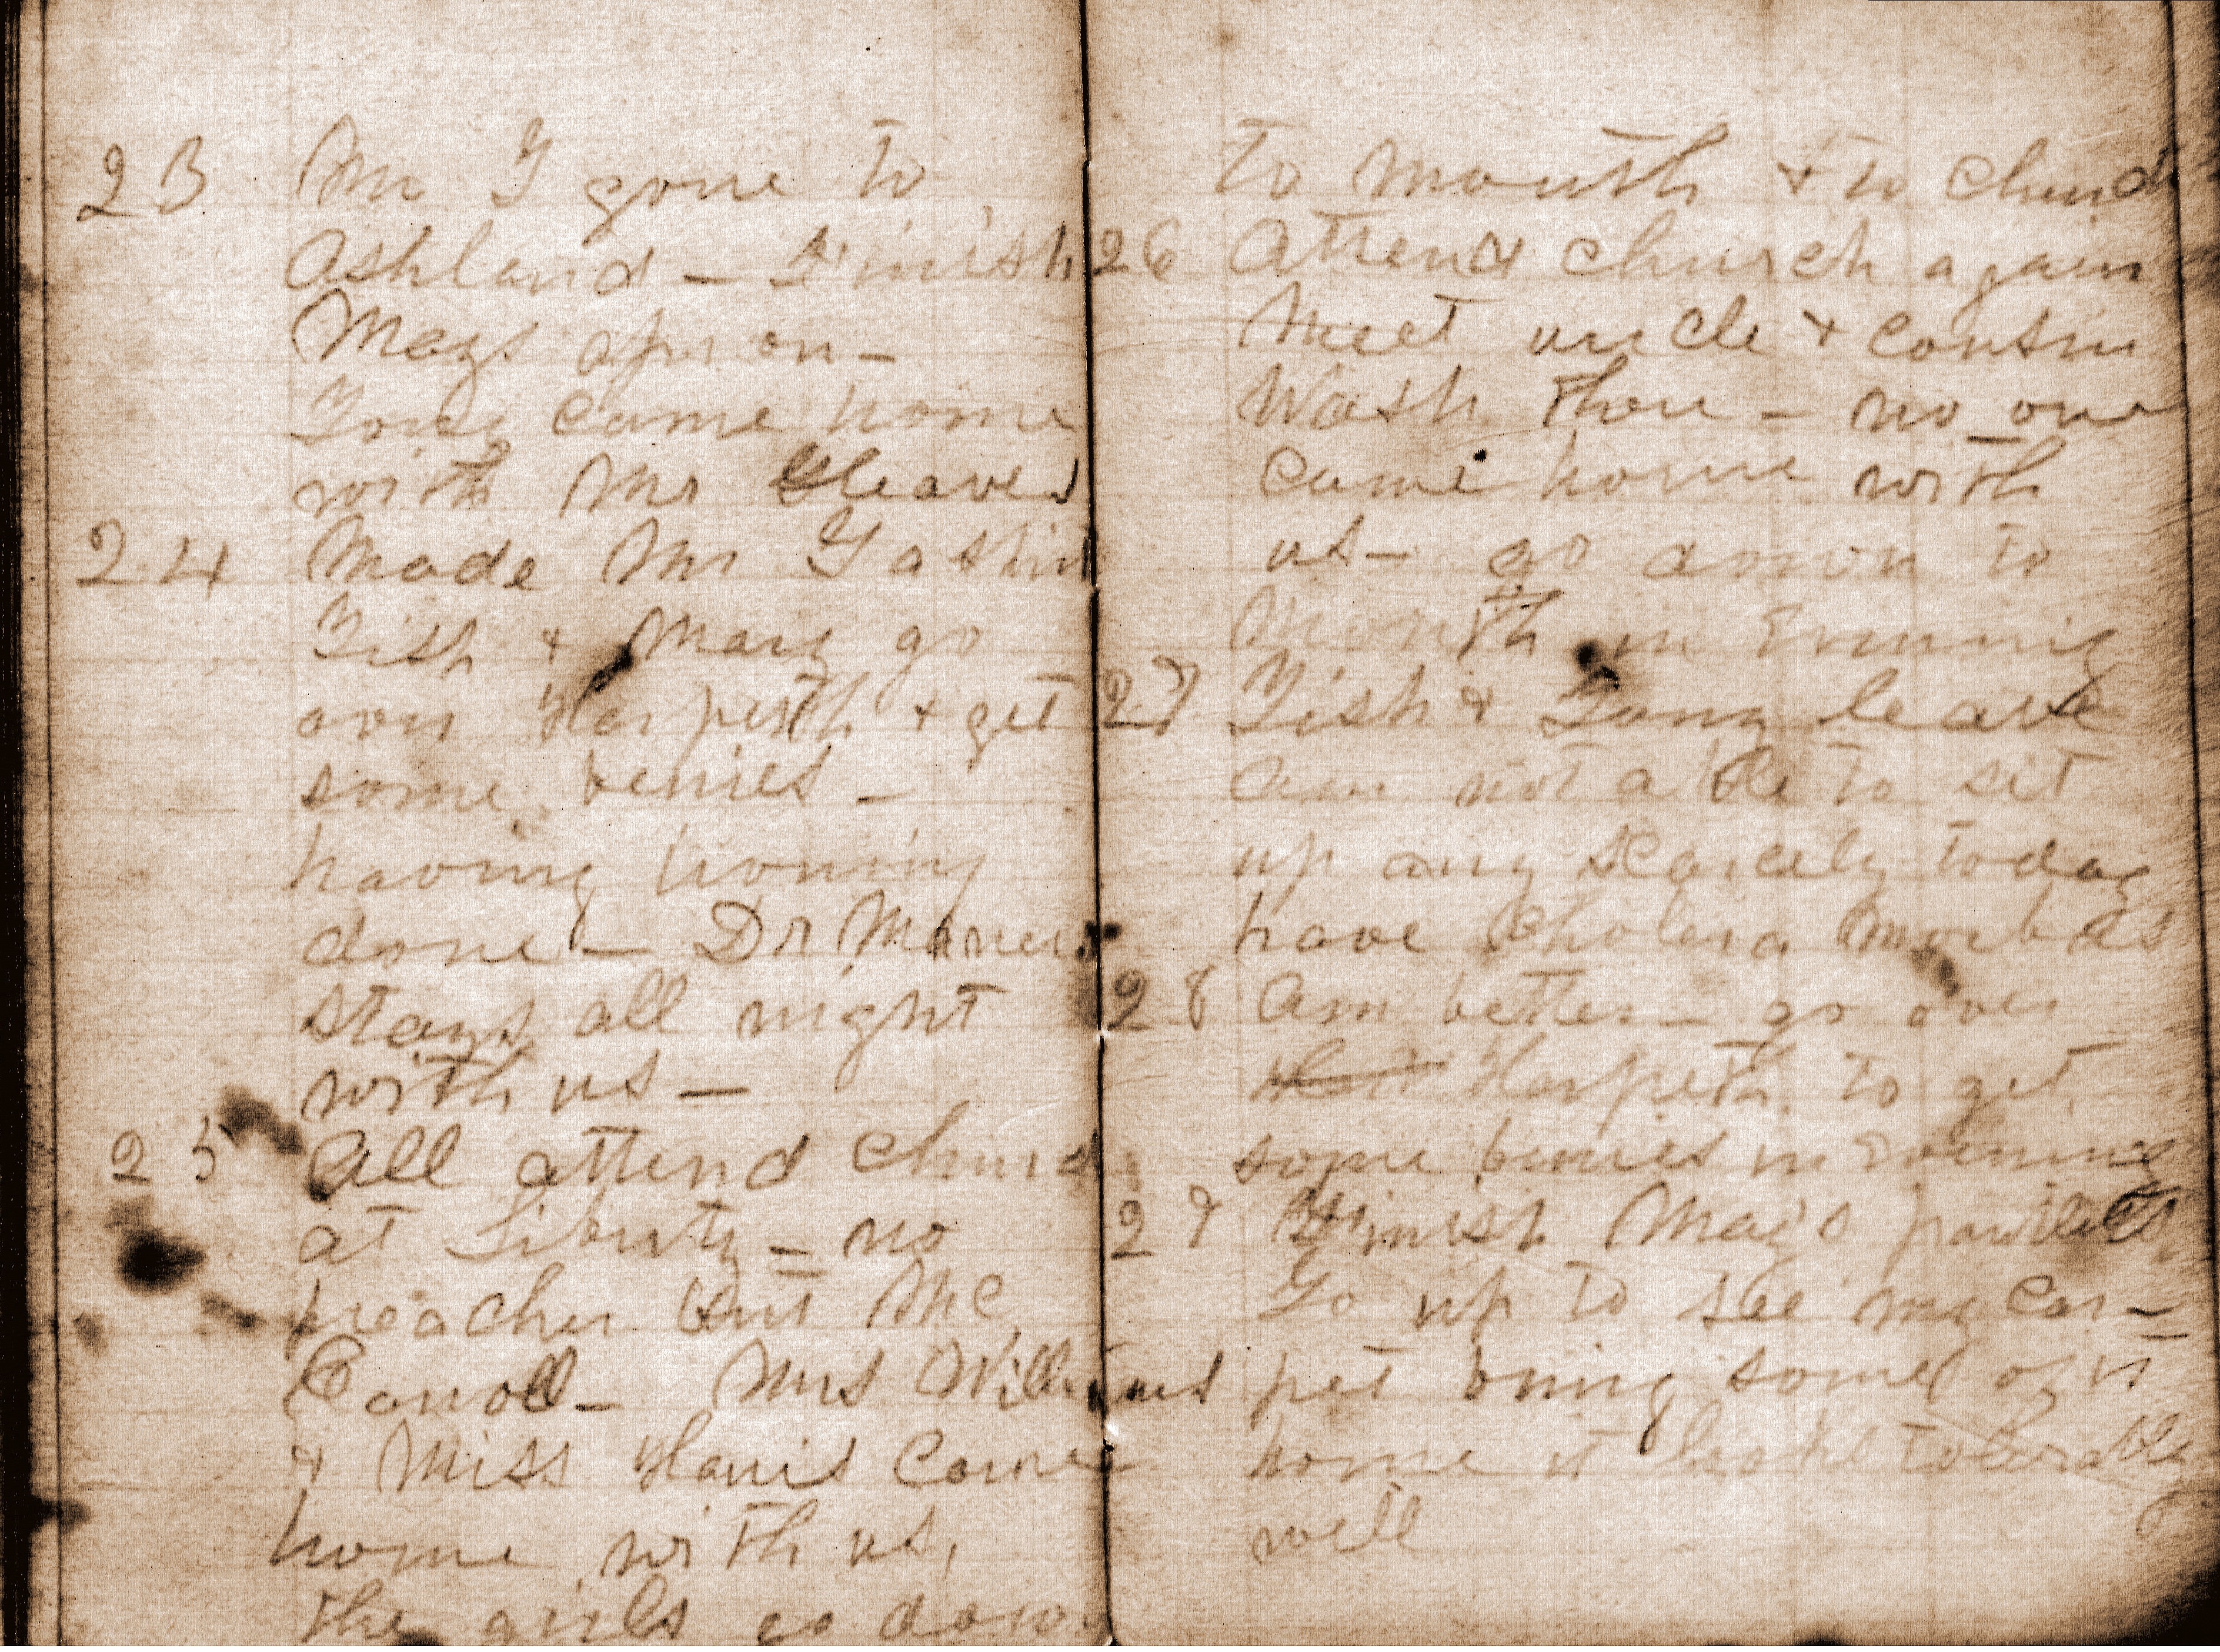 23 Mr G gone to
Ashland – Finish
Mags apron –
Tony came home
with Mr Gleaves
24 Made Mr G a shirt
Tish & Mary go
over Harpeth & get
some berries –
having ironing
done – Dr
stays all night
with us –
25 All attend church
at Liberty – no
preacher but Mc
Carroll – Mrs Williams
& Miss Harris Came
home with us,
the girls go down
to mouth & to church
26 Attend church again
Meet uncle & cousin
Wash there – no one
came home with
us – go down to
Mouth in Evening
27 Tish & Tony leave
am not able to sit
up any scarcely today
have Cholera Morbus
28 Am better – go over
Harpeth to get
some berries in Evening
29 Finish Mag's
Go up to see my Car-
pet bring some of it
home it looks tolerably
well